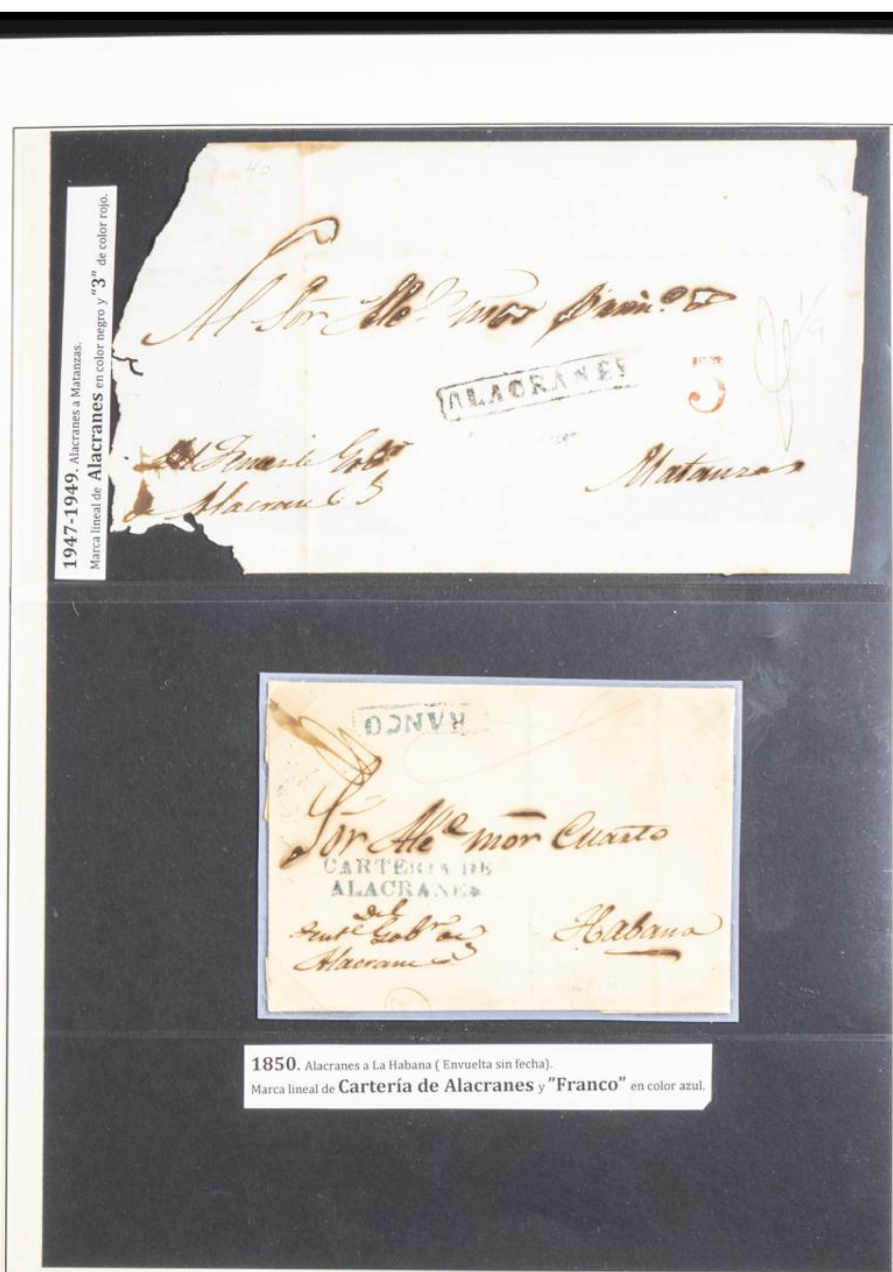 1947-1949. Alacranes a Matanzas.
Marca lineal de Alacranes en color negro y "3" de color rojo.
40
Al Sor Alc.e mor prim.o de
ALACRANES
3
1/9
Del Tenente Gobor
de Alacranes
Matanzas
FRANCO
Sor Alc.e mor Cuarto
CARTERIA DE
ALACRANES
Del
Tente Gobr de
Alacranes
Habana
1850. Alacranes a La Habana ( Envuelta sin fecha).
Marca lineal de Cartería de Alacranes y "Franco" en color azul.